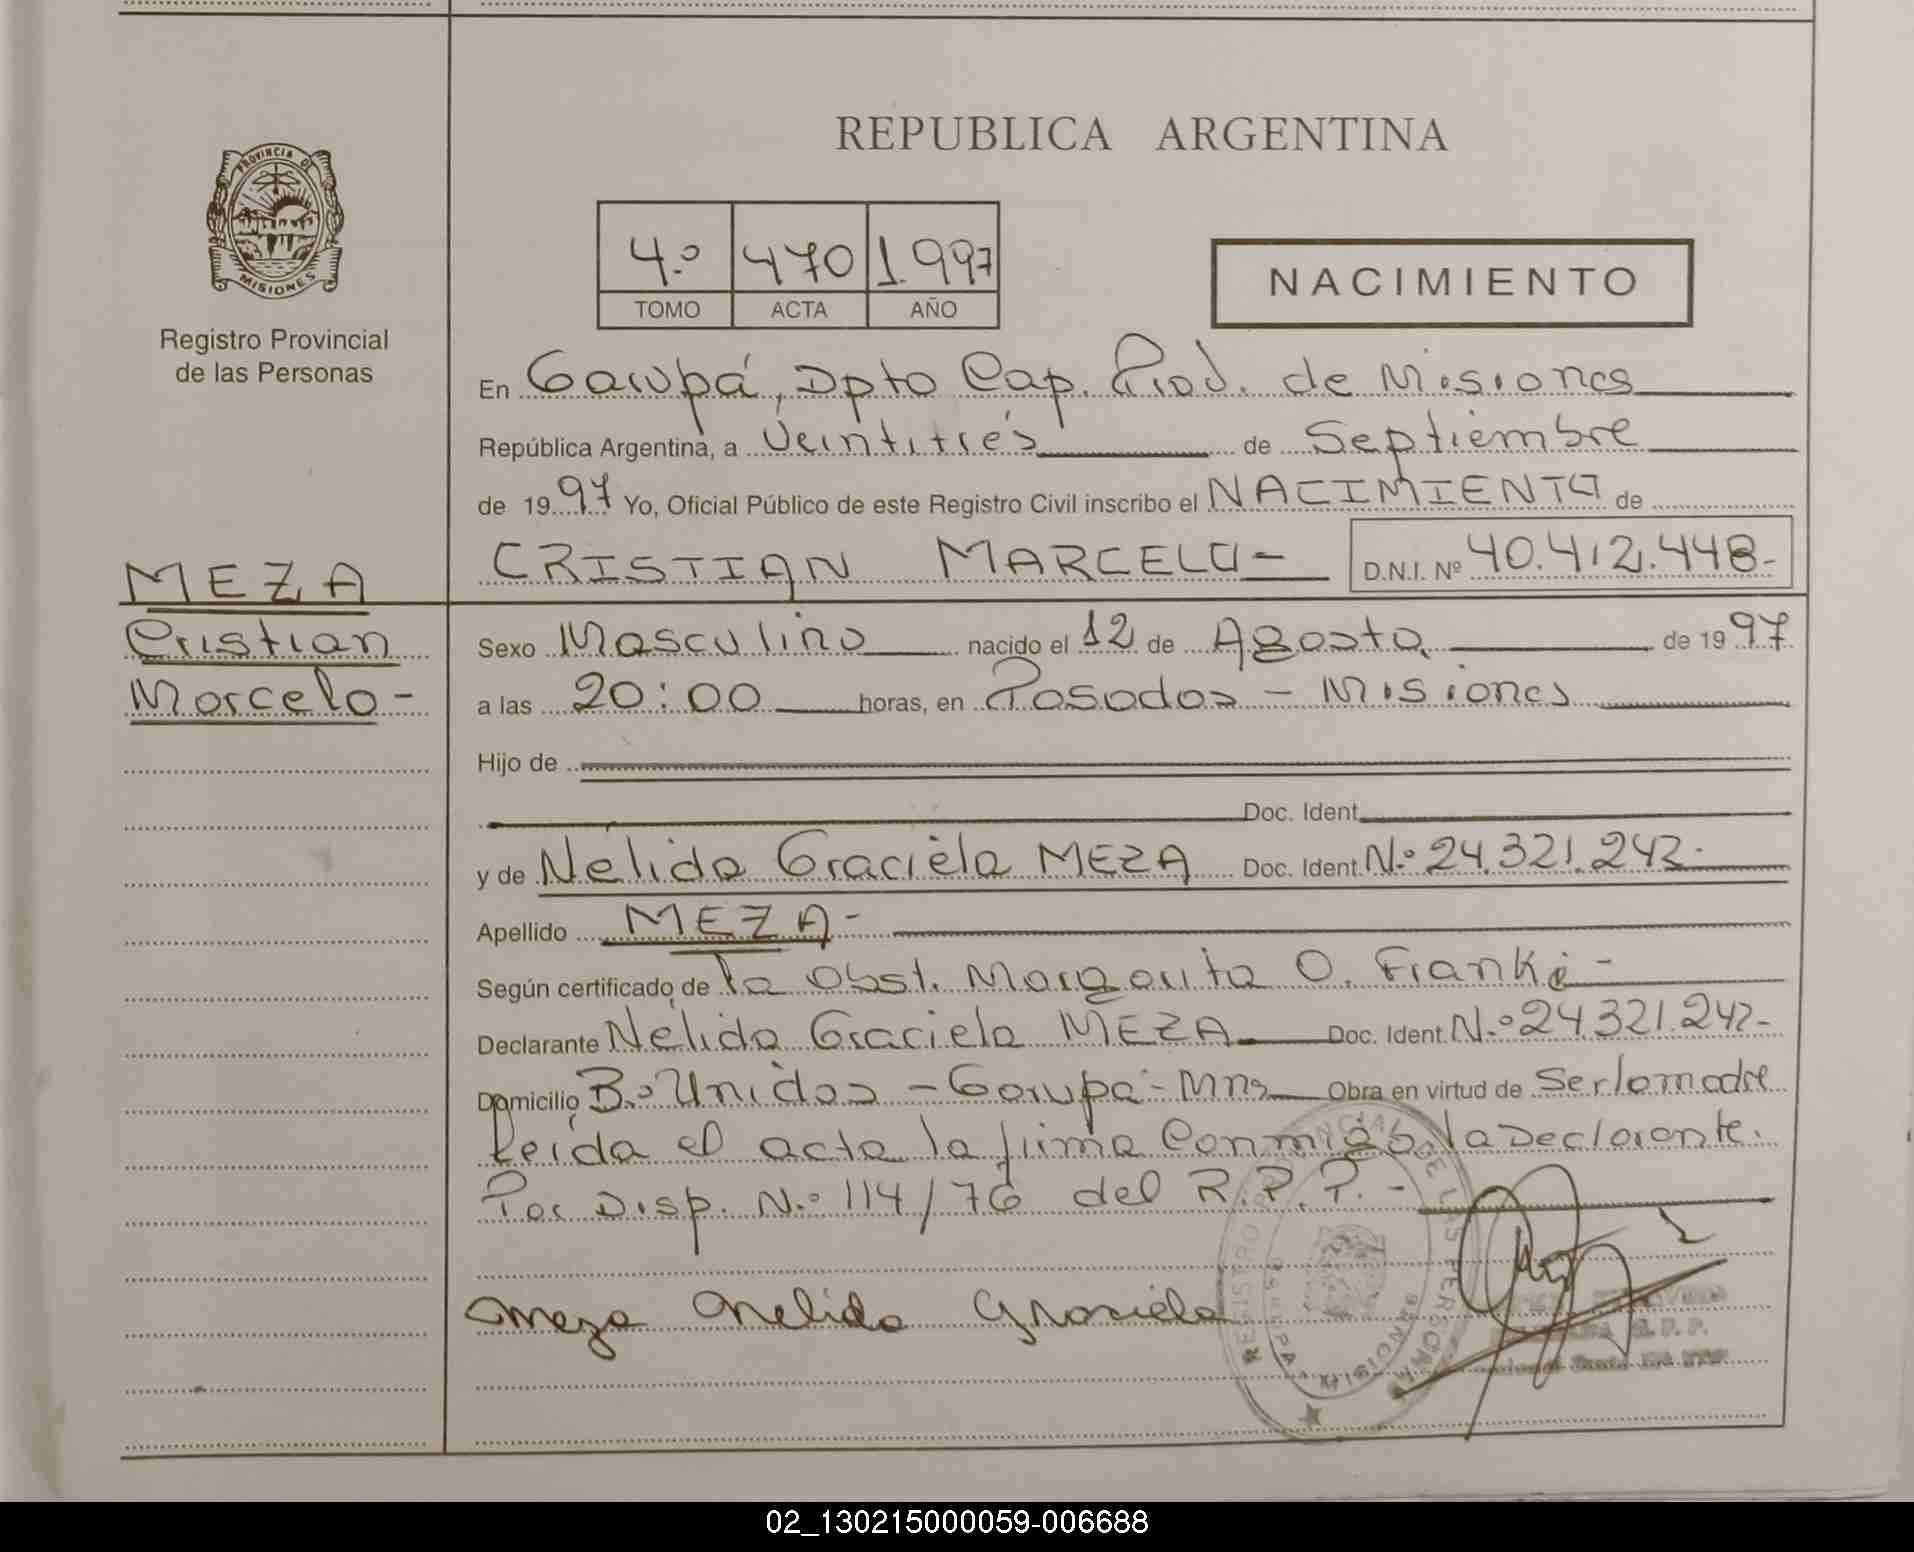 REPUBLICA ARGENTINA
PROVINCIA DE
MISIONES
Registro Provincial
de las Personas
4.º 470 1.997
TOMO ACTA AÑO
NACIMIENTO
En Garupá, Dpto Cap. Prov. de Misiones
República Argentina, a Veintitrés de Septiembre
de 1997 Yo, Oficial Público de este Registro Civil inscribo el NACIMIENTO de
CRISTIAN MARCELO- D.N.I. Nº 40.412.448-
MEZA
Cristian
Marcelo-
Sexo Masculino nacido el 12 de Agosto de 1997
a las 20:00 horas, en Posadas - Misiones
Hijo de
Doc. Ident.
y de Nélida Graciela MEZA Doc. Ident. N.º 24.321.242-
Apellido MEZA-
Según certificado de la Obst. Margarita O. Franke-
Declarante Nélida Graciela MEZA Doc. Ident. N.º 24.321.242-
Domicilio B.º Unidos - Garupá - Mnes Obra en virtud de Ser la madre
Leída el acta la firma Conmigo, la Declarante.
Por Disp. N.º 114/76 del R.P.P.-
Meza Nelida Graciela
REGISTRO PROVINCIAL DE LAS PERSONAS
GARUPA
MISIONES
02_130215000059-006688